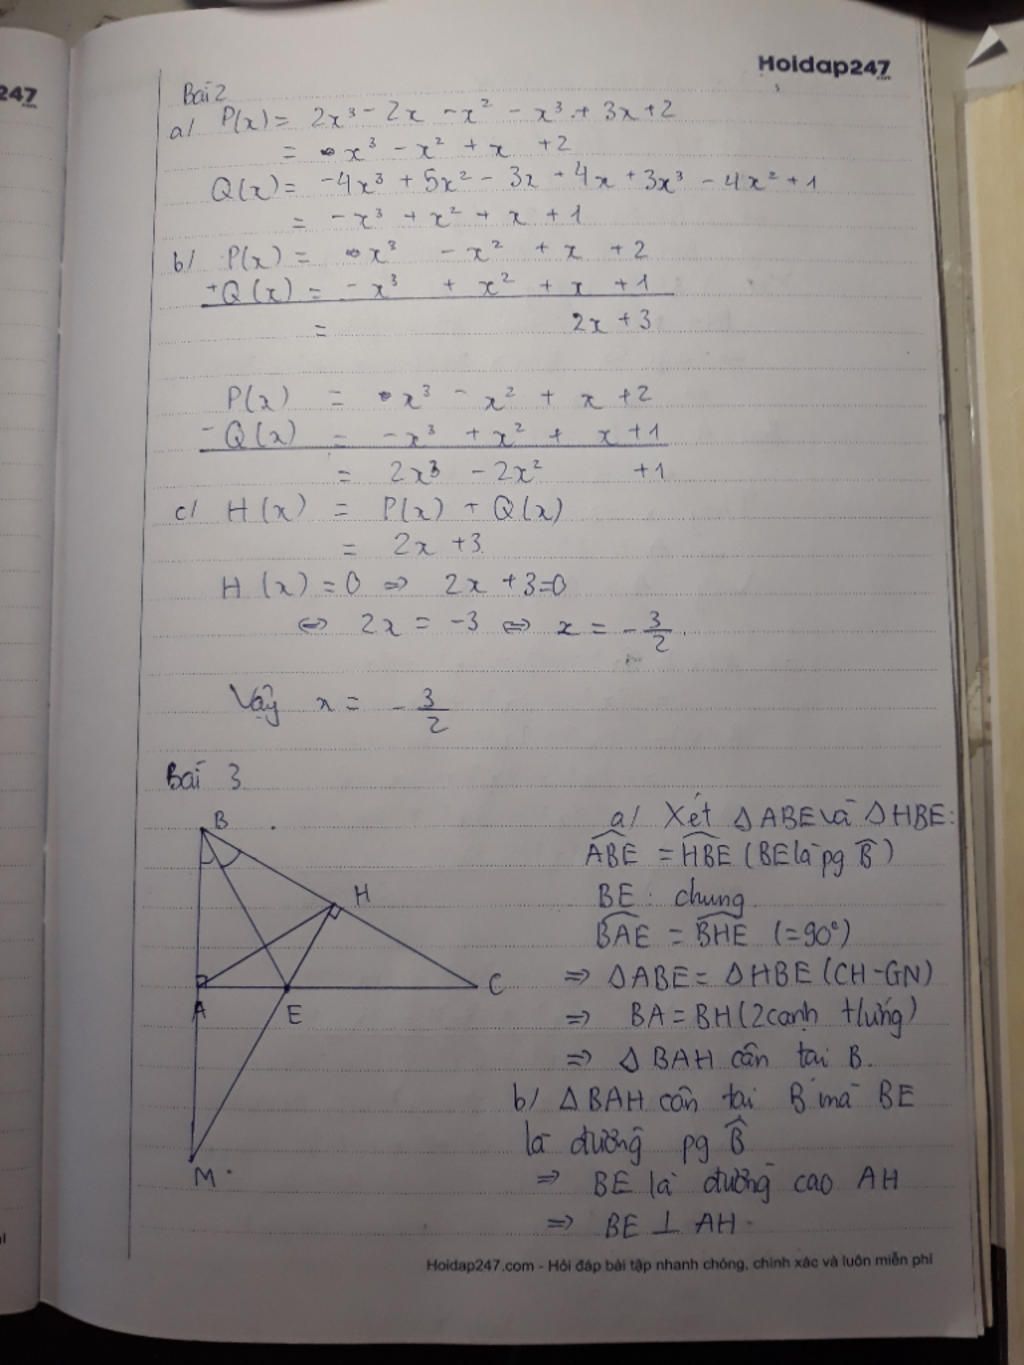 247
Hoidap247
.com
Bài 2
a/ P(x) = 2x³ - 2x - x² - x³ + 3x + 2
= x³ - x² + x + 2
Q(x) = -4x³ + 5x² - 3x + 4x + 3x³ - 4x² + 1
= -x³ + x² + x + 1
b/ P(x) = x³ - x² + x + 2
+Q(x) = -x³ + x² + x + 1
= 2x + 3
P(x) = x³ - x² + x + 2
-Q(x) = -x³ + x² + x + 1
= 2x³ - 2x² + 1
c/ H(x) = P(x) + Q(x)
= 2x + 3
H(x) = 0 => 2x + 3 = 0
<=> 2x = -3 <=> x = -3/2
Vậy x = -3/2
Bài 3
B
H
A
E
C
M
a/ Xét △ABE và △HBE:
ABE = HBE (BE là pg B)
BE: chung
BAE = BHE (=90°)
=> △ABE = △HBE (CH-GN)
=> BA = BH (2 cạnh tứng)
=> △BAH cân tại B.
b/ △BAH cân tại B mà BE
là đường pg B
=> BE là đường cao AH
=> BE ⊥ AH
Hoidap247.com - Hỏi đáp bài tập nhanh chóng, chính xác và luôn miễn phí